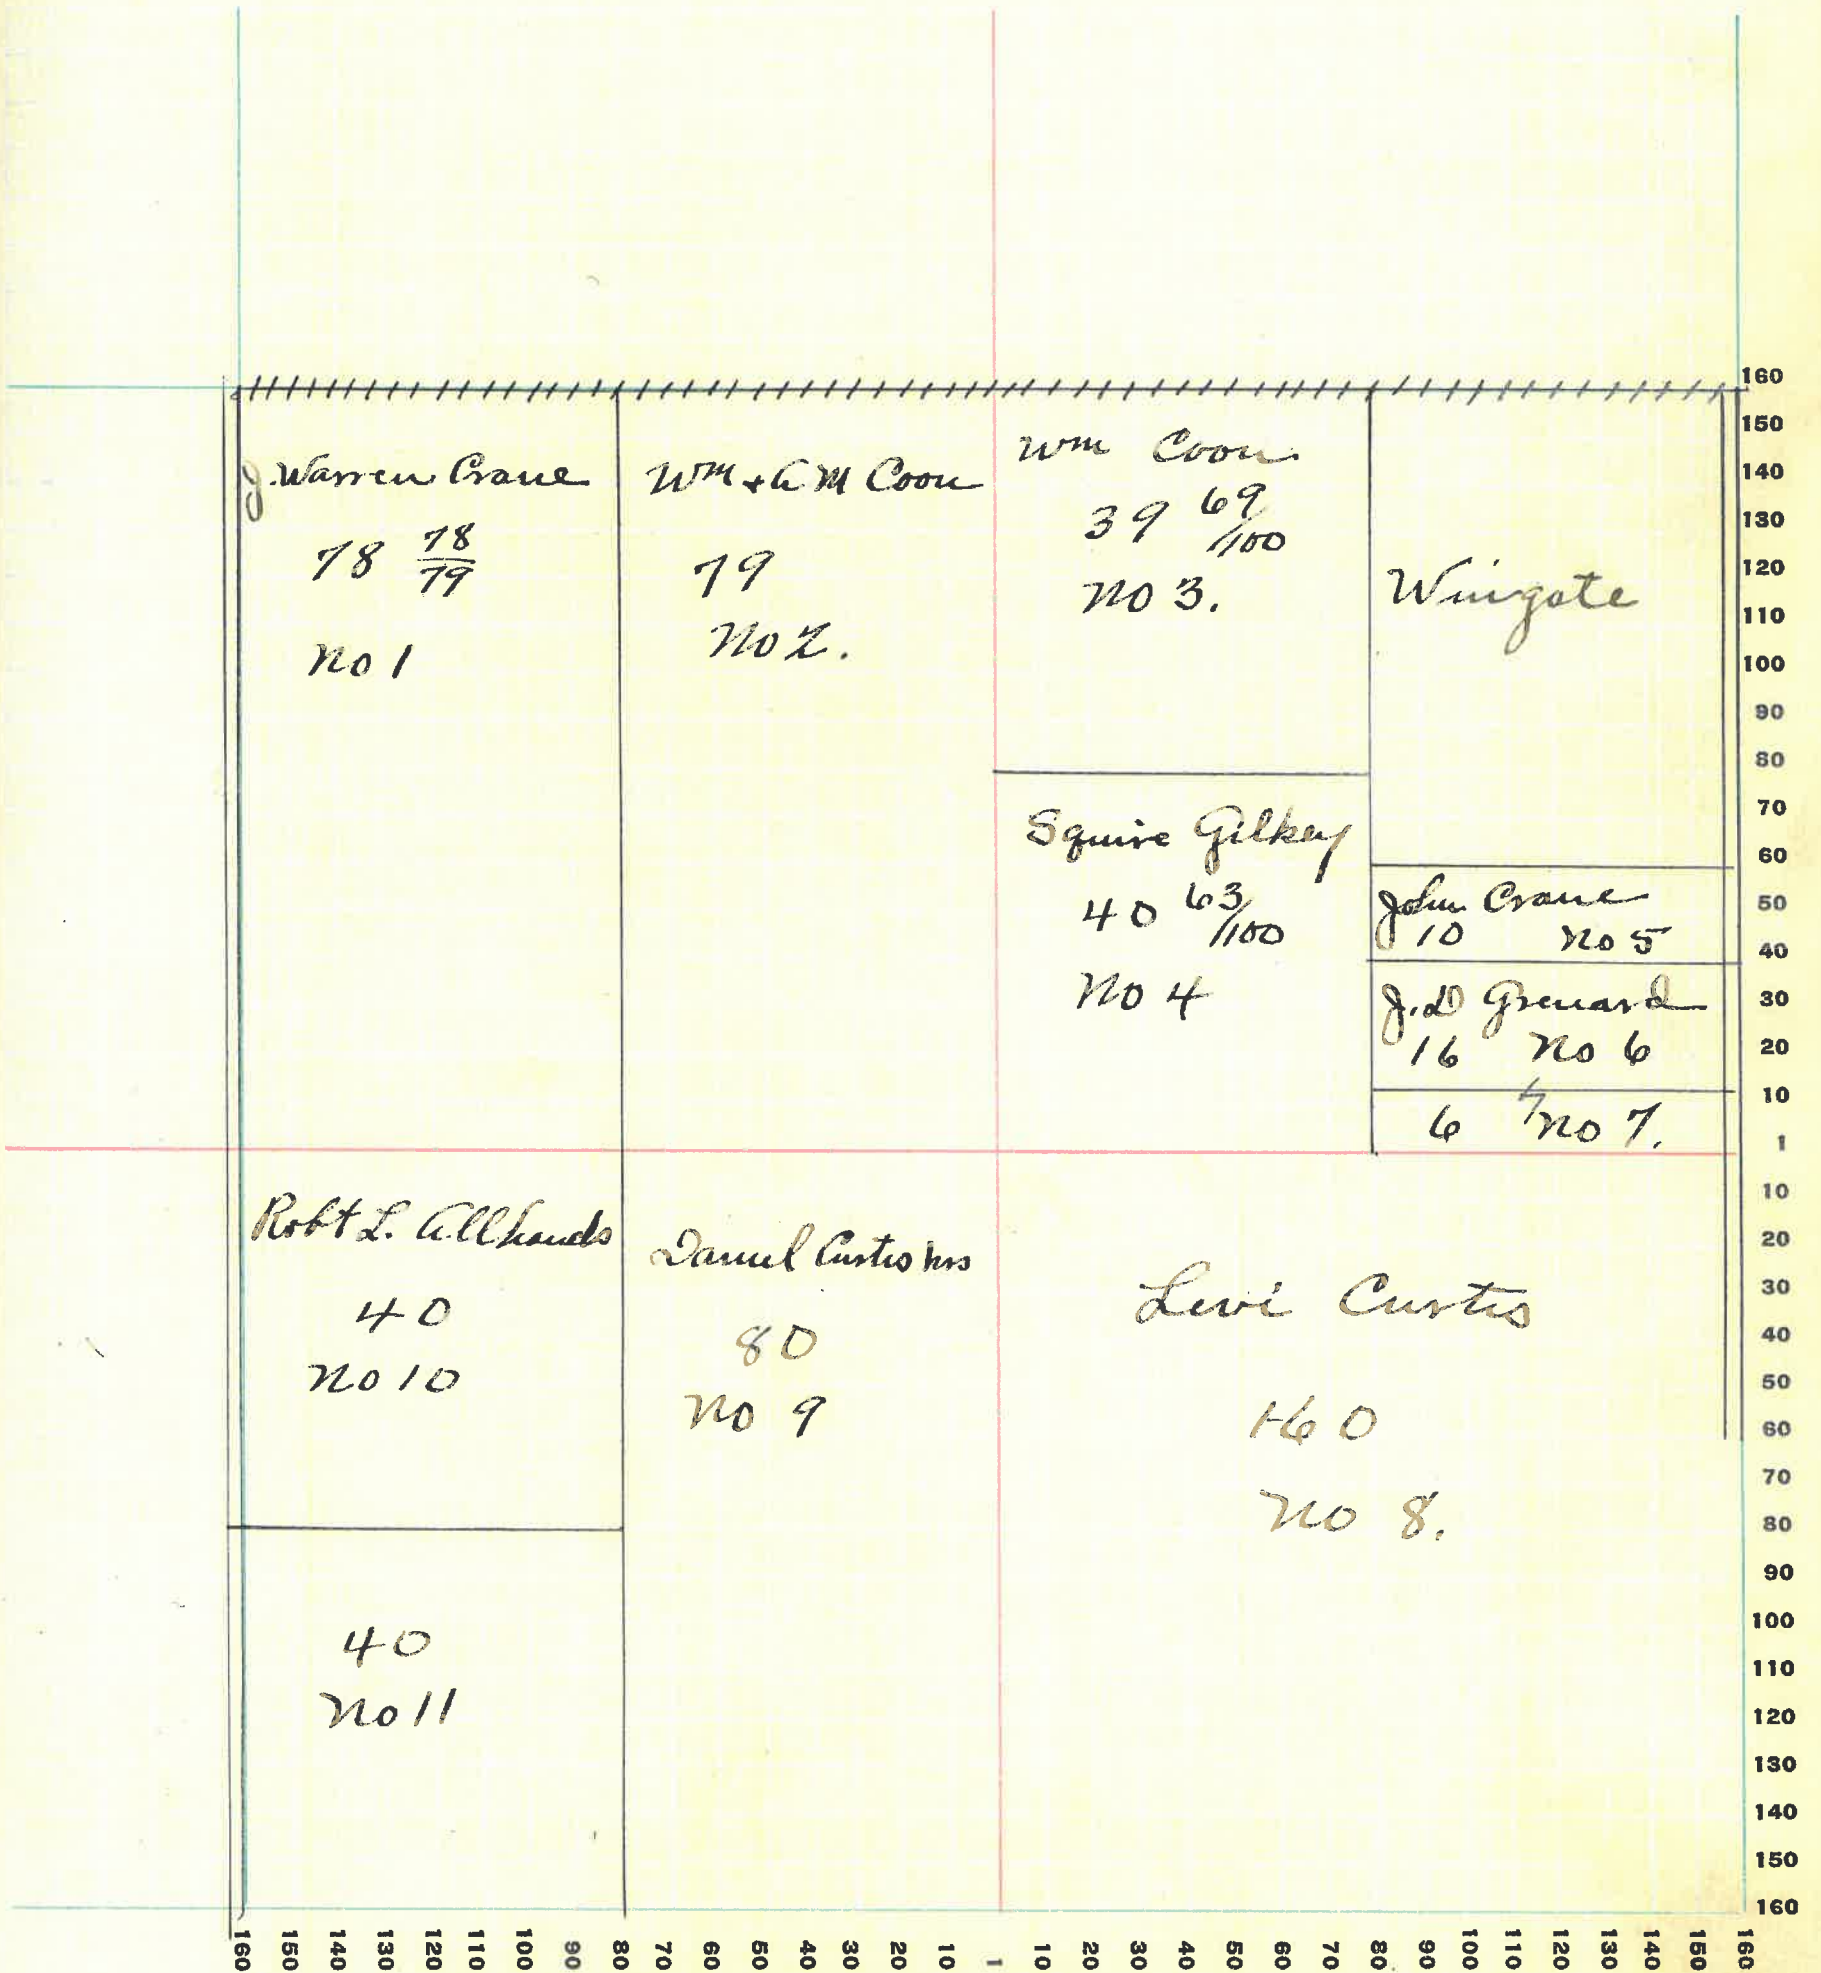 J. Warren Crane
78 78/79
No 1
Wm + A M Coon
79
No 2.
Wm Coon
39 69/100
No 3.
Wingate
Squire Gilkey
40 63/100
No 4
John Crane
10 No 5
J. D Grenard
16 No 6
6 No 7.
Robt L. Allhands
40
No 10
Daniel Curtis hrs
80
No 9
Levi Curtis
160
No 8.
40
No 11
160
150
140
130
120
110
100
90
80
70
60
50
40
30
20
10
1
10
20
30
40
50
60
70
80
90
100
110
120
130
140
150
160
160 150 140 130 120 110 100 90 80 70 60 50 40 30 20 10 1 10 20 30 40 50 60 70 80 90 100 110 120 130 140 150 160